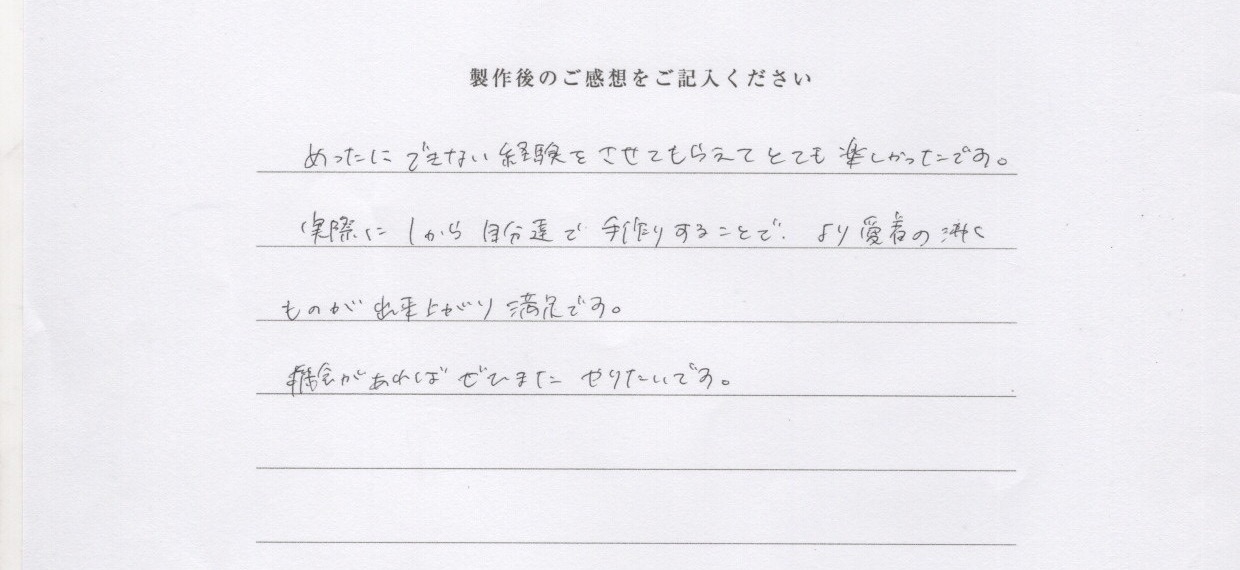 製作後のご感想をご記入ください
めったにできない経験をさせてもらえてとても楽しかったです。
実際に1から自分達で手作りすることで、より愛着の沸く
ものが出来上がり満足です。
機会があればぜひまたやりたいです。